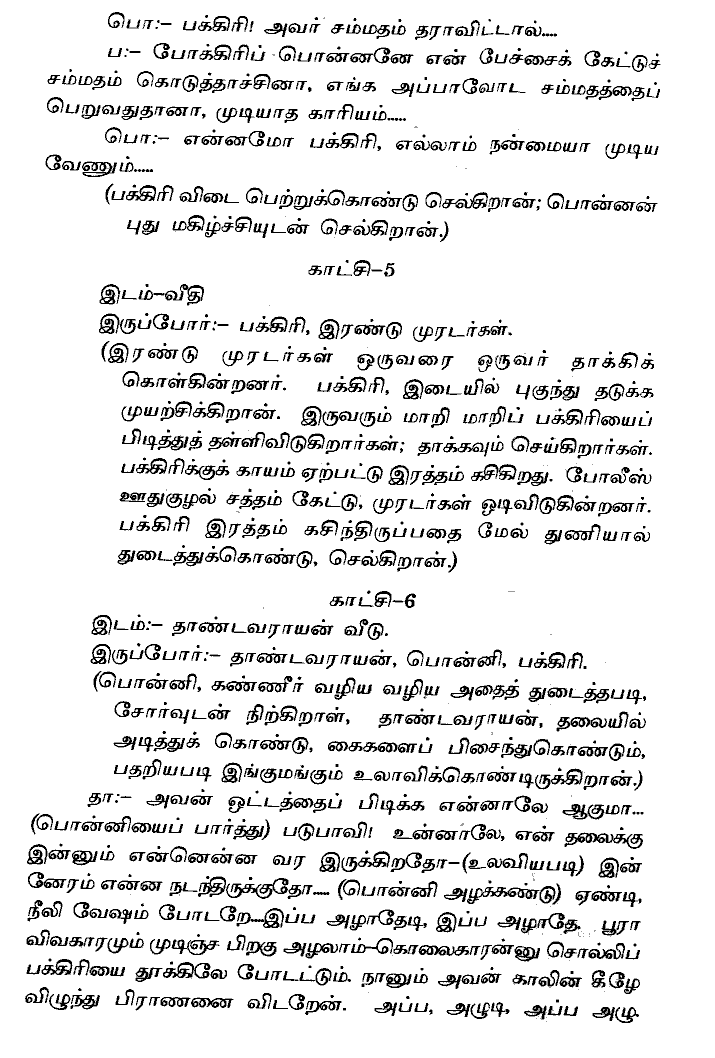 பொ:– பக்கிரி! அவர் சம்மதம் தராவிட்டால்....
ப:– போக்கிரிப் பொன்னனே என் பேச்சைக் கேட்டுச்
சம்மதம் கொடுத்தாச்சினா, எங்க அப்பாவோட சம்மதத்தைப்
பெறுவதுதானா, முடியாத காரியம்.....
பொ:– என்னமோ பக்கிரி, எல்லாம் நன்மையா முடிய
வேணும்.....
(பக்கிரி விடை பெற்றுக்கொண்டு செல்கிறான்; பொன்னன்
புது மகிழ்ச்சியுடன் செல்கிறான்.)
காட்சி–5
இடம்–வீதி
இருப்போர்:– பக்கிரி, இரண்டு முரடர்கள்.
(இரண்டு முரடர்கள் ஒருவரை ஒருவர் தாக்கிக்
கொள்கின்றனர். பக்கிரி, இடையில் புகுந்து தடுக்க
முயற்சிக்கிறான். இருவரும் மாறி மாறிப் பக்கிரியைப்
பிடித்துத் தள்ளிவிடுகிறார்கள்; தாக்கவும் செய்கிறார்கள்.
பக்கிரிக்குக் காயம் ஏற்பட்டு இரத்தம் கசிகிறது. போலீஸ்
ஊதுகுழல் சத்தம் கேட்டு, முரடர்கள் ஓடிவிடுகின்றனர்.
பக்கிரி இரத்தம் கசிந்திருப்பதை மேல் துணியால்
துடைத்துக்கொண்டு, செல்கிறான்.)
காட்சி–6
இடம்:– தாண்டவராயன் வீடு.
இருப்போர்:– தாண்டவராயன், பொன்னி, பக்கிரி.
(பொன்னி, கண்ணீர் வழிய வழிய அதைத் துடைத்தபடி,
சோர்வுடன் நிற்கிறாள், தாண்டவராயன், தலையில்
அடித்துக் கொண்டு, கைகளைப் பிசைந்துகொண்டும்,
பதறியபடி இங்குமங்கும் உலாவிக்கொண்டிருக்கிறான்.)
தா:– அவன் ஓட்டத்தைப் பிடிக்க என்னாலே ஆகுமா...
(பொன்னியைப் பார்த்து) படுபாவி! உன்னாலே, என் தலைக்கு
இன்னும் என்னென்ன வர இருக்கிறதோ–(உலவியபடி) இன்
னேரம் என்ன நடந்திருக்குதோ..... (பொன்னி அழக்கண்டு) ஏண்டி,
நீலி வேஷம் போடறே....இப்ப அழாதேடி, இப்ப அழாதே. பூரா
விவகாரமும் முடிஞ்ச பிறகு அழலாம்–கொலைகாரன்னு சொல்லிப்
பக்கிரியை தூக்கிலே போடட்டும். நானும் அவன் காலின் கீழே
விழுந்து பிராணனை விடறேன். அப்ப, அழுடி, அப்ப அழு.